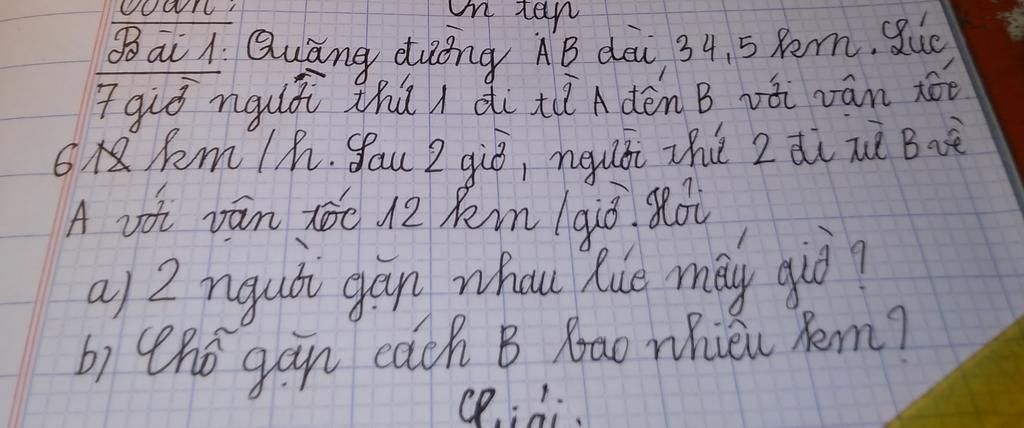 Toán: Ôn tập
Bài 1: Quãng đường AB dài 34,5 km. Lúc
7 giờ người thứ 1 đi từ A đến B với vận tốc
6 12 km/h. Sau 2 giờ, người thứ 2 đi từ B về
A với vận tốc 12 km/giờ. Hỏi
a) 2 người gặp nhau lúc mấy giờ?
b) Chỗ gặp cách B bao nhiêu km?
Giải: